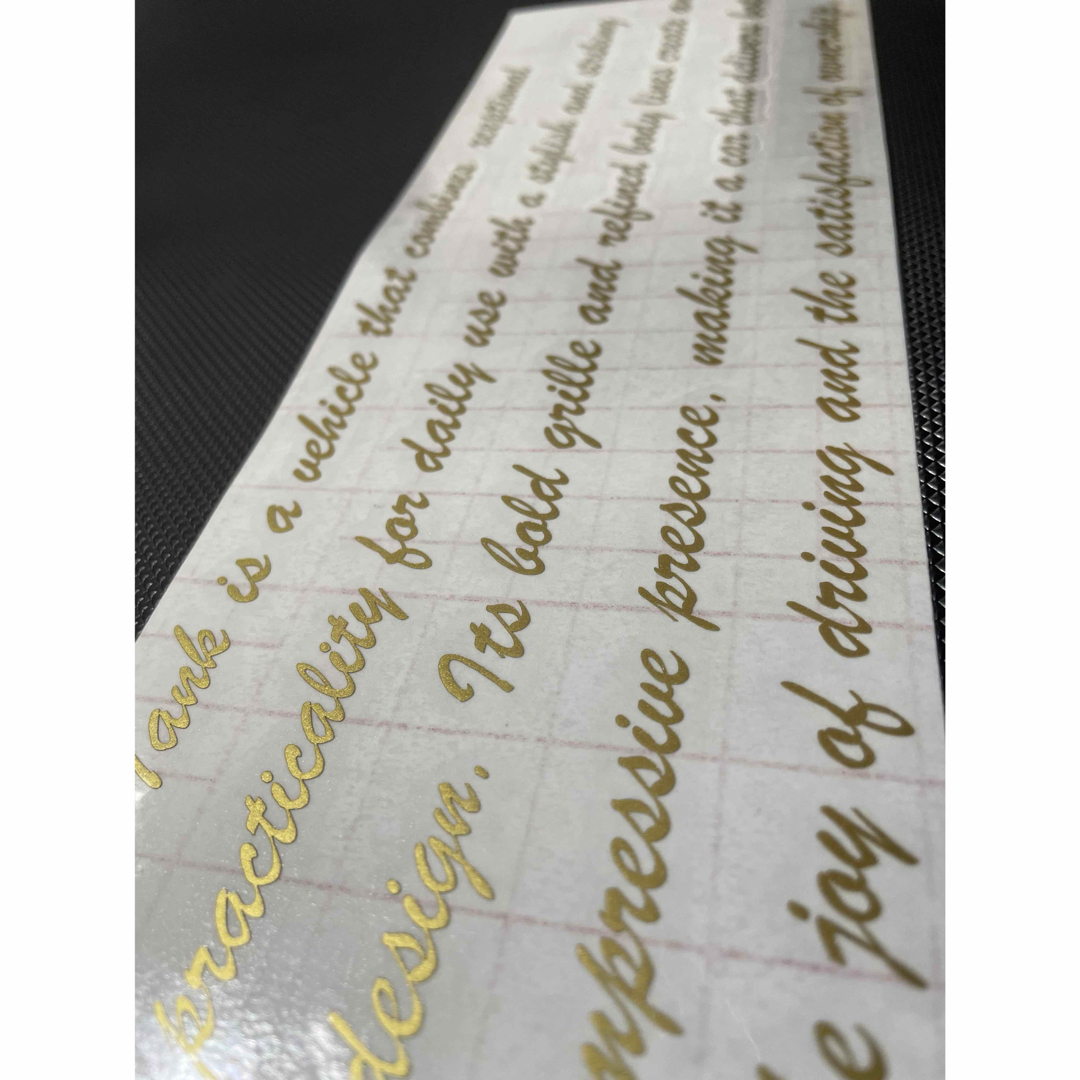 Tank is a vehicle that combines exceptional
practicality for daily use with a stylish and striking
design. Its bold grille and refined body lines create
impressive presence, making it a car that delivers
joy of driving and the satisfaction of ownership.